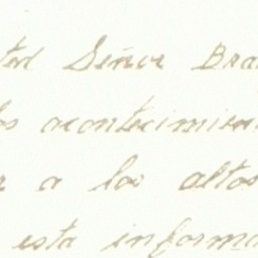 ted Señor Bra
los acontecimien
r a los altos
esta informa